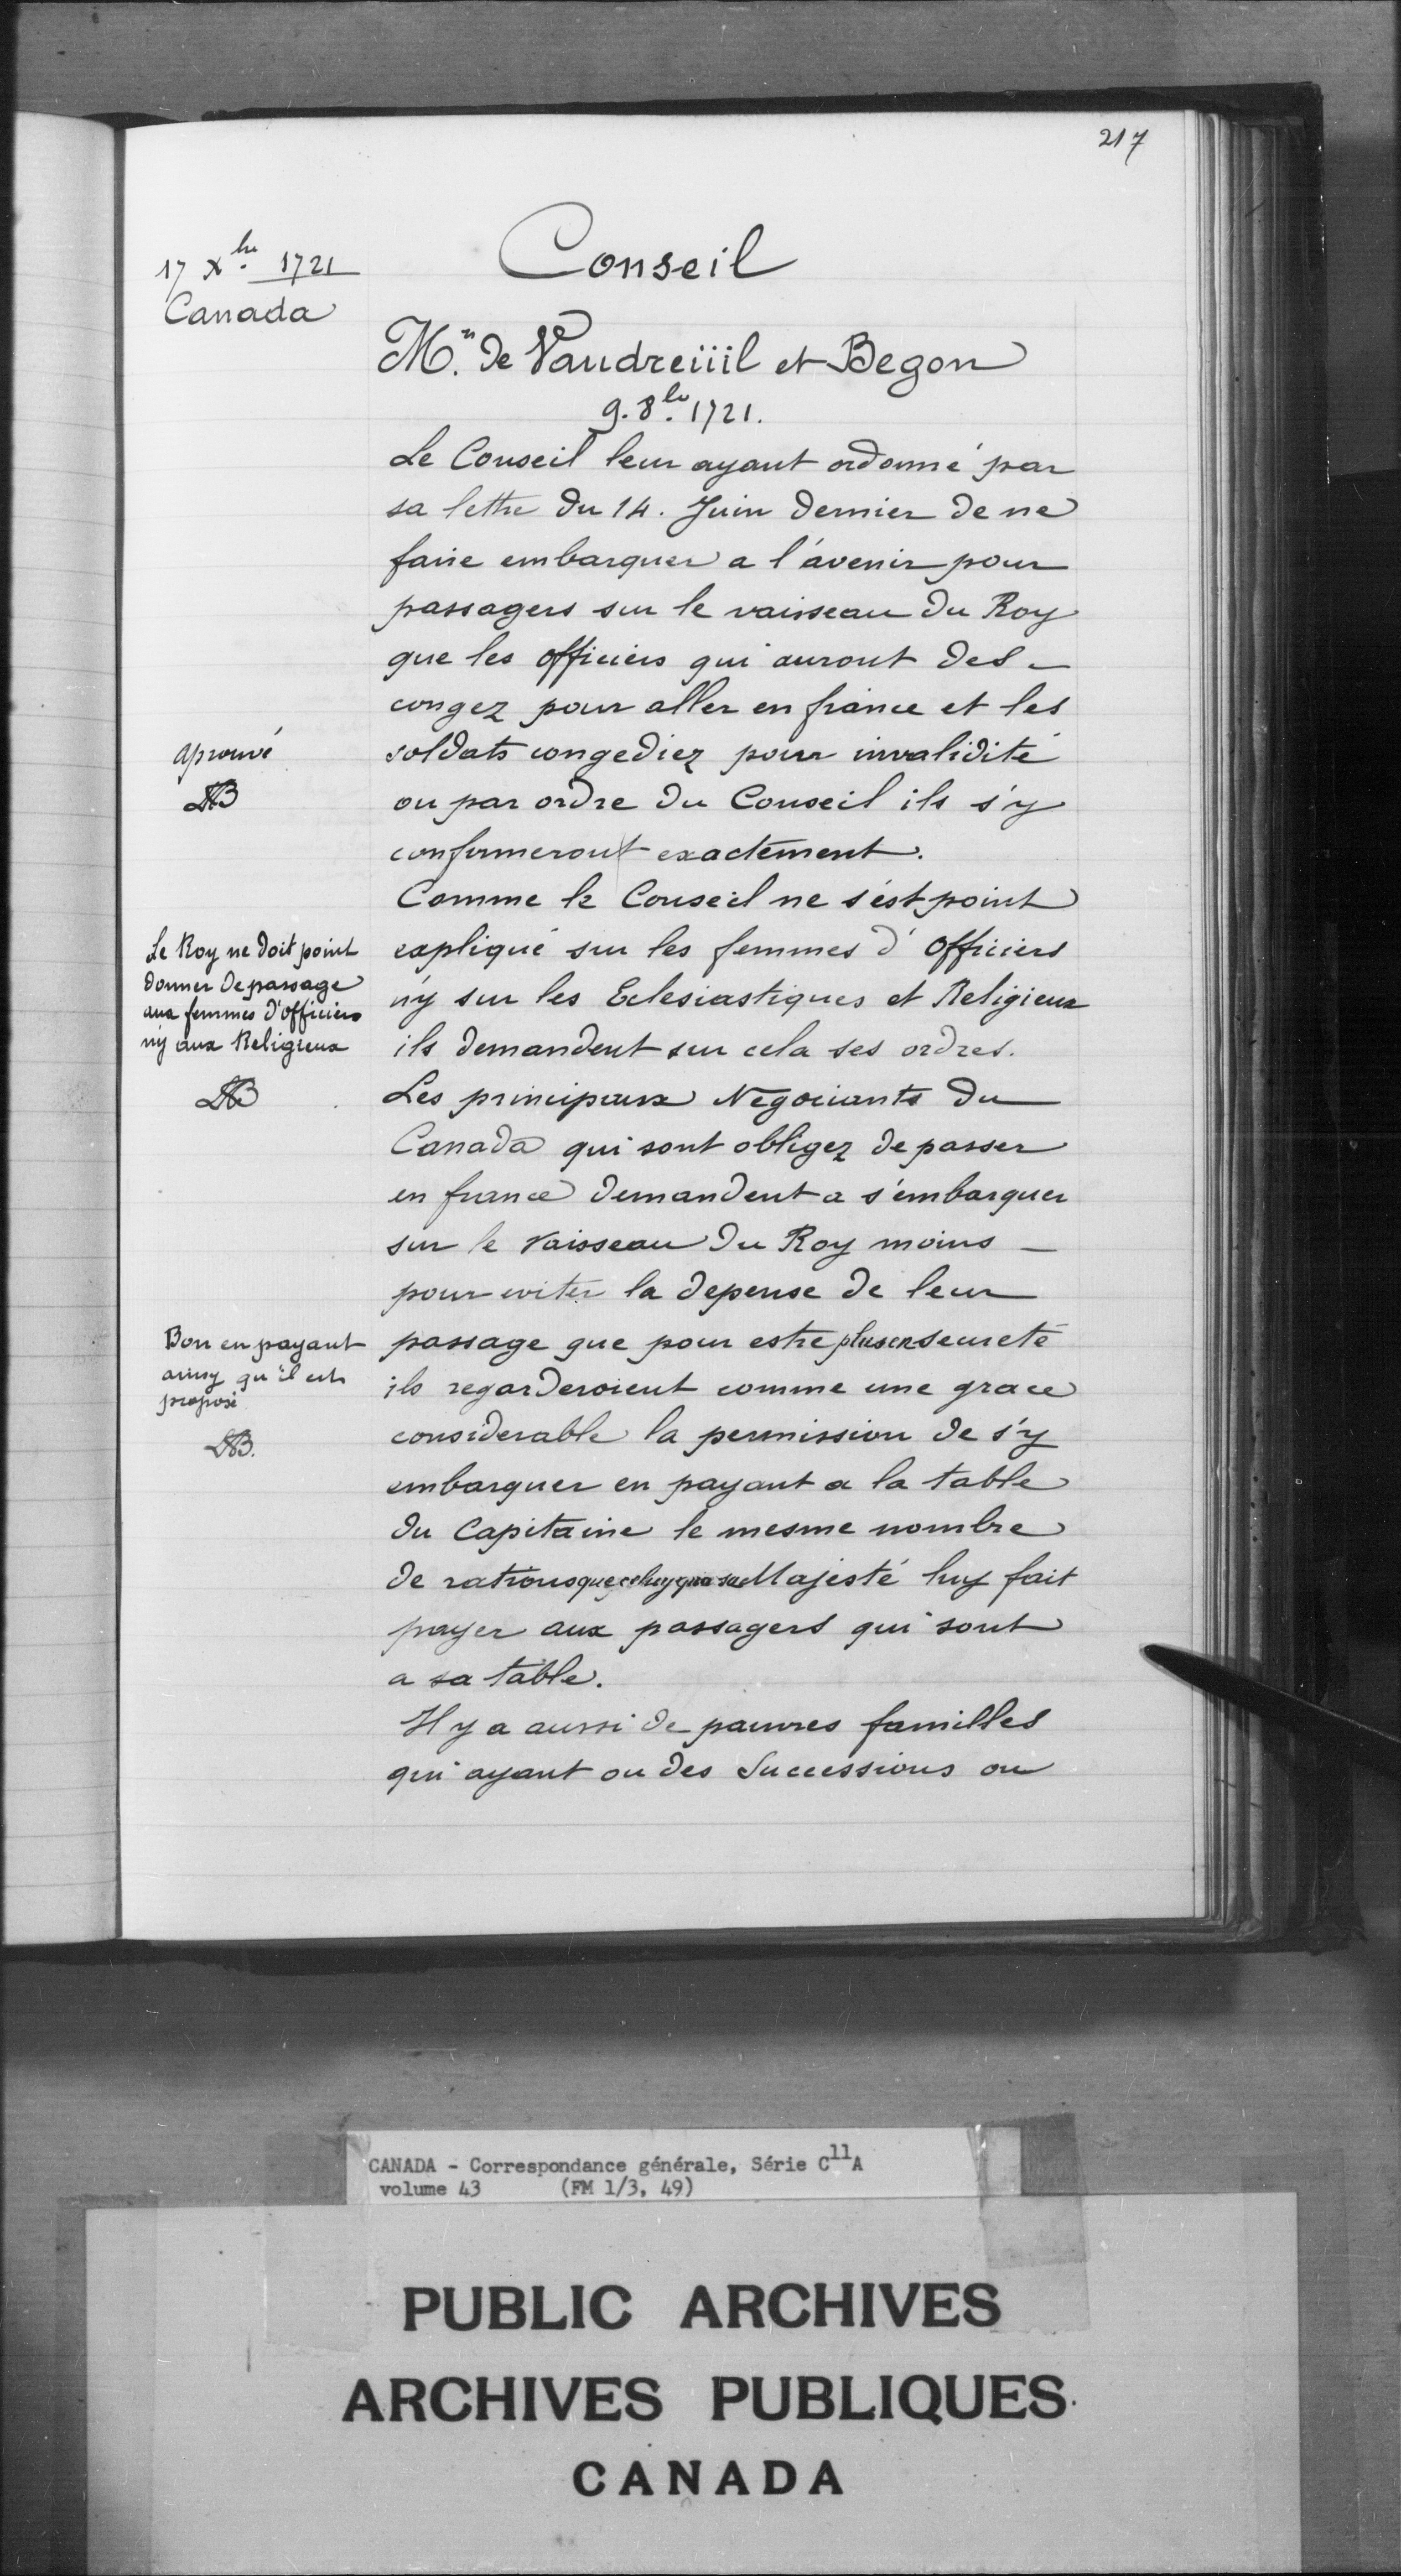 217
17 Xbre 1721
Canada
Conseil
Mrs de Vaudreüil et Begon
9. 8bre 1721.
Le Conseil leur ayant ordonné par
sa lettre du 14. Juin dernier de ne
faire embarquer a l'avenir pour
passagers sur le vaisseau du Roy
que les officiers qui auront des
congez pour aller en france et les
soldats congediez pour invalidité
ou par ordre du Conseil ils s'y
conformeront exactement.
aprouvé
LAB
Comme le Conseil ne s'est point
expliqué sur les femmes d'officiers
n'y sur les Eclesiastiques et Religieux
ils demandent sur cela ses ordres.
Le Roy ne doit point
donner de passage
aux femmes d'officiers
n'y aux Religieux
LAB
Les principaux Negociants du
Canada qui sont obligez de passer
en france demandent a s'embarquer
sur le vaisseau du Roy moins
pour eviter la depense de leur
passage que pour estre plus en seureté
ils regarderoient comme une grace
considerable la permission de s'y
embarquer en payant a la table
du Capitaine le mesme nombre
de rations que celuy que sa Majesté luy fait
payer aux passagers qui sont
a sa table.
Bon en payant
ainsy qu'il est
proposé
LAB.
Il y a aussi de pauvres familles
qui ayant ou des Successions ou
CANADA - Correspondance générale, Série C11A
volume 43 (FM 1/3, 49)
PUBLIC ARCHIVES
ARCHIVES PUBLIQUES
CANADA